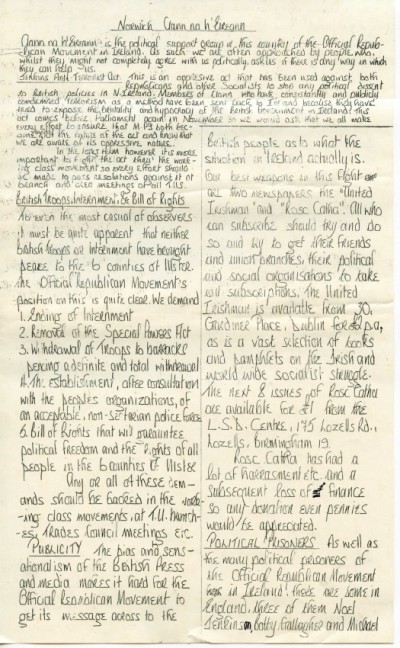 Norwich Clann na h'Eireann
Clann na h'Eireann is the political support group in this country of the Official Repub-
lican Movement in Ireland. As such we are often approached by people who,
whilst they might not completely agree with us politically, ask us if there is any way in which
they can help us.
Jenkins Anti Terrorist Act. This is an oppressive act that has been used against both
Republicans and other Socialists to stop any political dissent
to British policies in N. Ireland. Members of Clann who have consistently and publicly
condemned Terrorism as a method have been sent back to Ireland because they have
tried to expose the brutality and hypocrisy of the British Government in Ireland. The
act comes before Parliament again in November so we would ask that we all make
every effort to ensure that M.P's both
the rights of the act and know that
we are aware of its oppressive nature.
In the long term however it is more
important to fight the act thru' the work-
ing class movement so every effort should
be made to pass resolutions against it at
branch and area meetings of all T.U.s
British Troops, Internment, & Bill of Rights
To even the most casual of observers
it must be quite apparent that neither
British Troops or Internment have brought
peace to the 6 counties of Ulster.
The Official Republican Movement's
position on this is quite clear. We demand
1. Ending of Internment
2. Removal of the Special Powers Act
3. Withdrawal of Troops to barracks
pending a definite and total withdrawal
4. The establishment, after consultation
with the peoples organizations, of
an acceptable, non-sectarian police force
5. Bill of Rights that will guarantee
political freedom and the rights of all
people in the 6 counties of Ulster
Any or all of these dem-
ands should be backed in the work-
ing class movements, at T.U. branch-
es, Trades Council meetings etc.
PUBLICITY The bias and sens-
ationalism of the British Press
and media makes it hard for the
Official Republican Movement to
get its message across to the
British people as to what the
situation in Ireland actually is.
Our best weapons in this fight
are two newspapers the "United
Irishman" and "Rosc Catha". All who
can subscribe should try and do
so and try to get their friends
and union branches, their political
and social organisations to take
out subscriptions. The United
Irishman is available from 30,
Gardiner Place, Dublin for p.a,
as is a vast selection of books
and pamphlets on the Irish and
world wide socialist struggle.
The next 8 issues of Rosc Catha
are available for £1 from the
L.S.D. Centre, 175 Lozells Rd.,
Lozells, Birmingham 19.
Rosc Catha has had a
lot of harrasment etc. and a
subsequent loss of finance
so any donation even pennies
would be appreciated.
POLITICAL PRISONERS As well as
the many political prisoners of
the Official Republican Movement
in Ireland there are some in
England, three of them Noel
Jenkinson, Cathy Gallagher and Michael